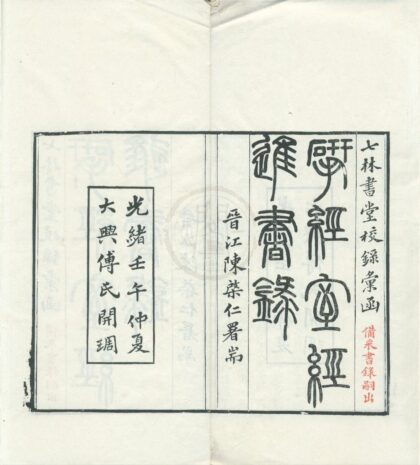 七林書堂校錄彙函
備采書錄嗣出
揅經室經
進書錄
晉江陳棨仁署耑
光緒壬午仲夏
大興傅氏開琱